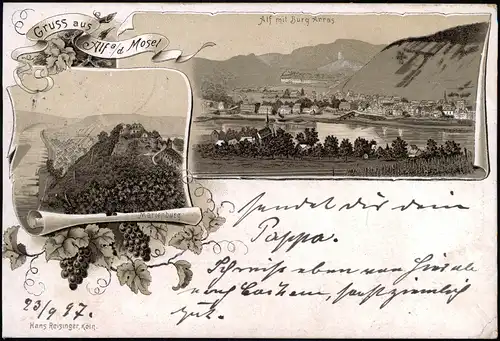 Gruss aus
Alf a/d Mosel
Alf mit Burg Arras
Marienburg
sendet dir dein
Pappa.
Schreibe eben von
nach Cochem, sonst ziemlich
gut.
23/9 97.
Hans Reisinger, Köln.